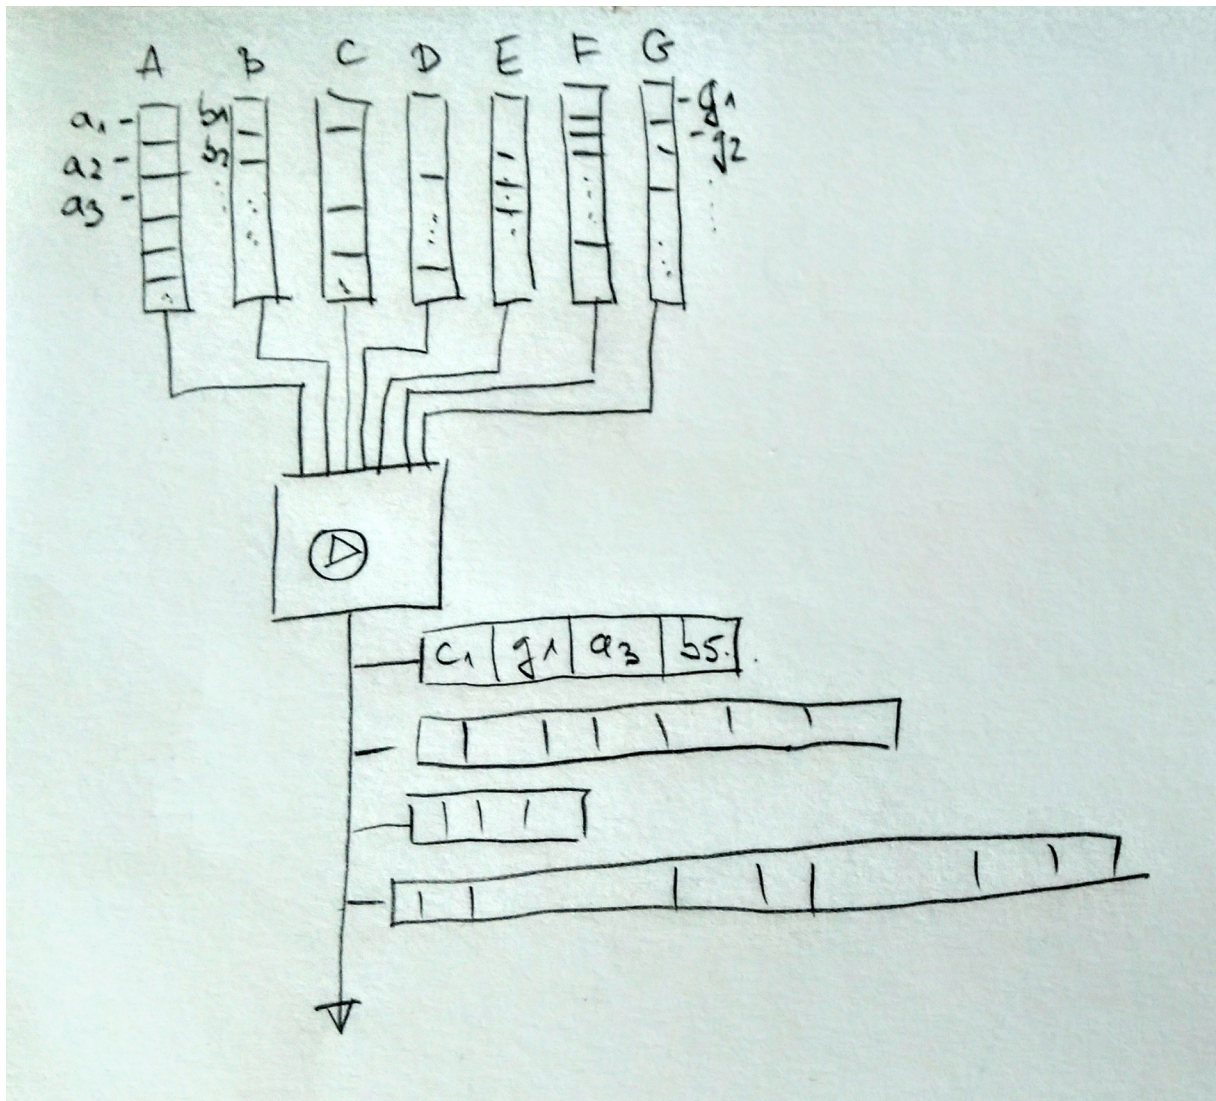 A B C D E F G
a1
a2
a3
b1
b2
g1
g2
c1 g1 a3 b5.